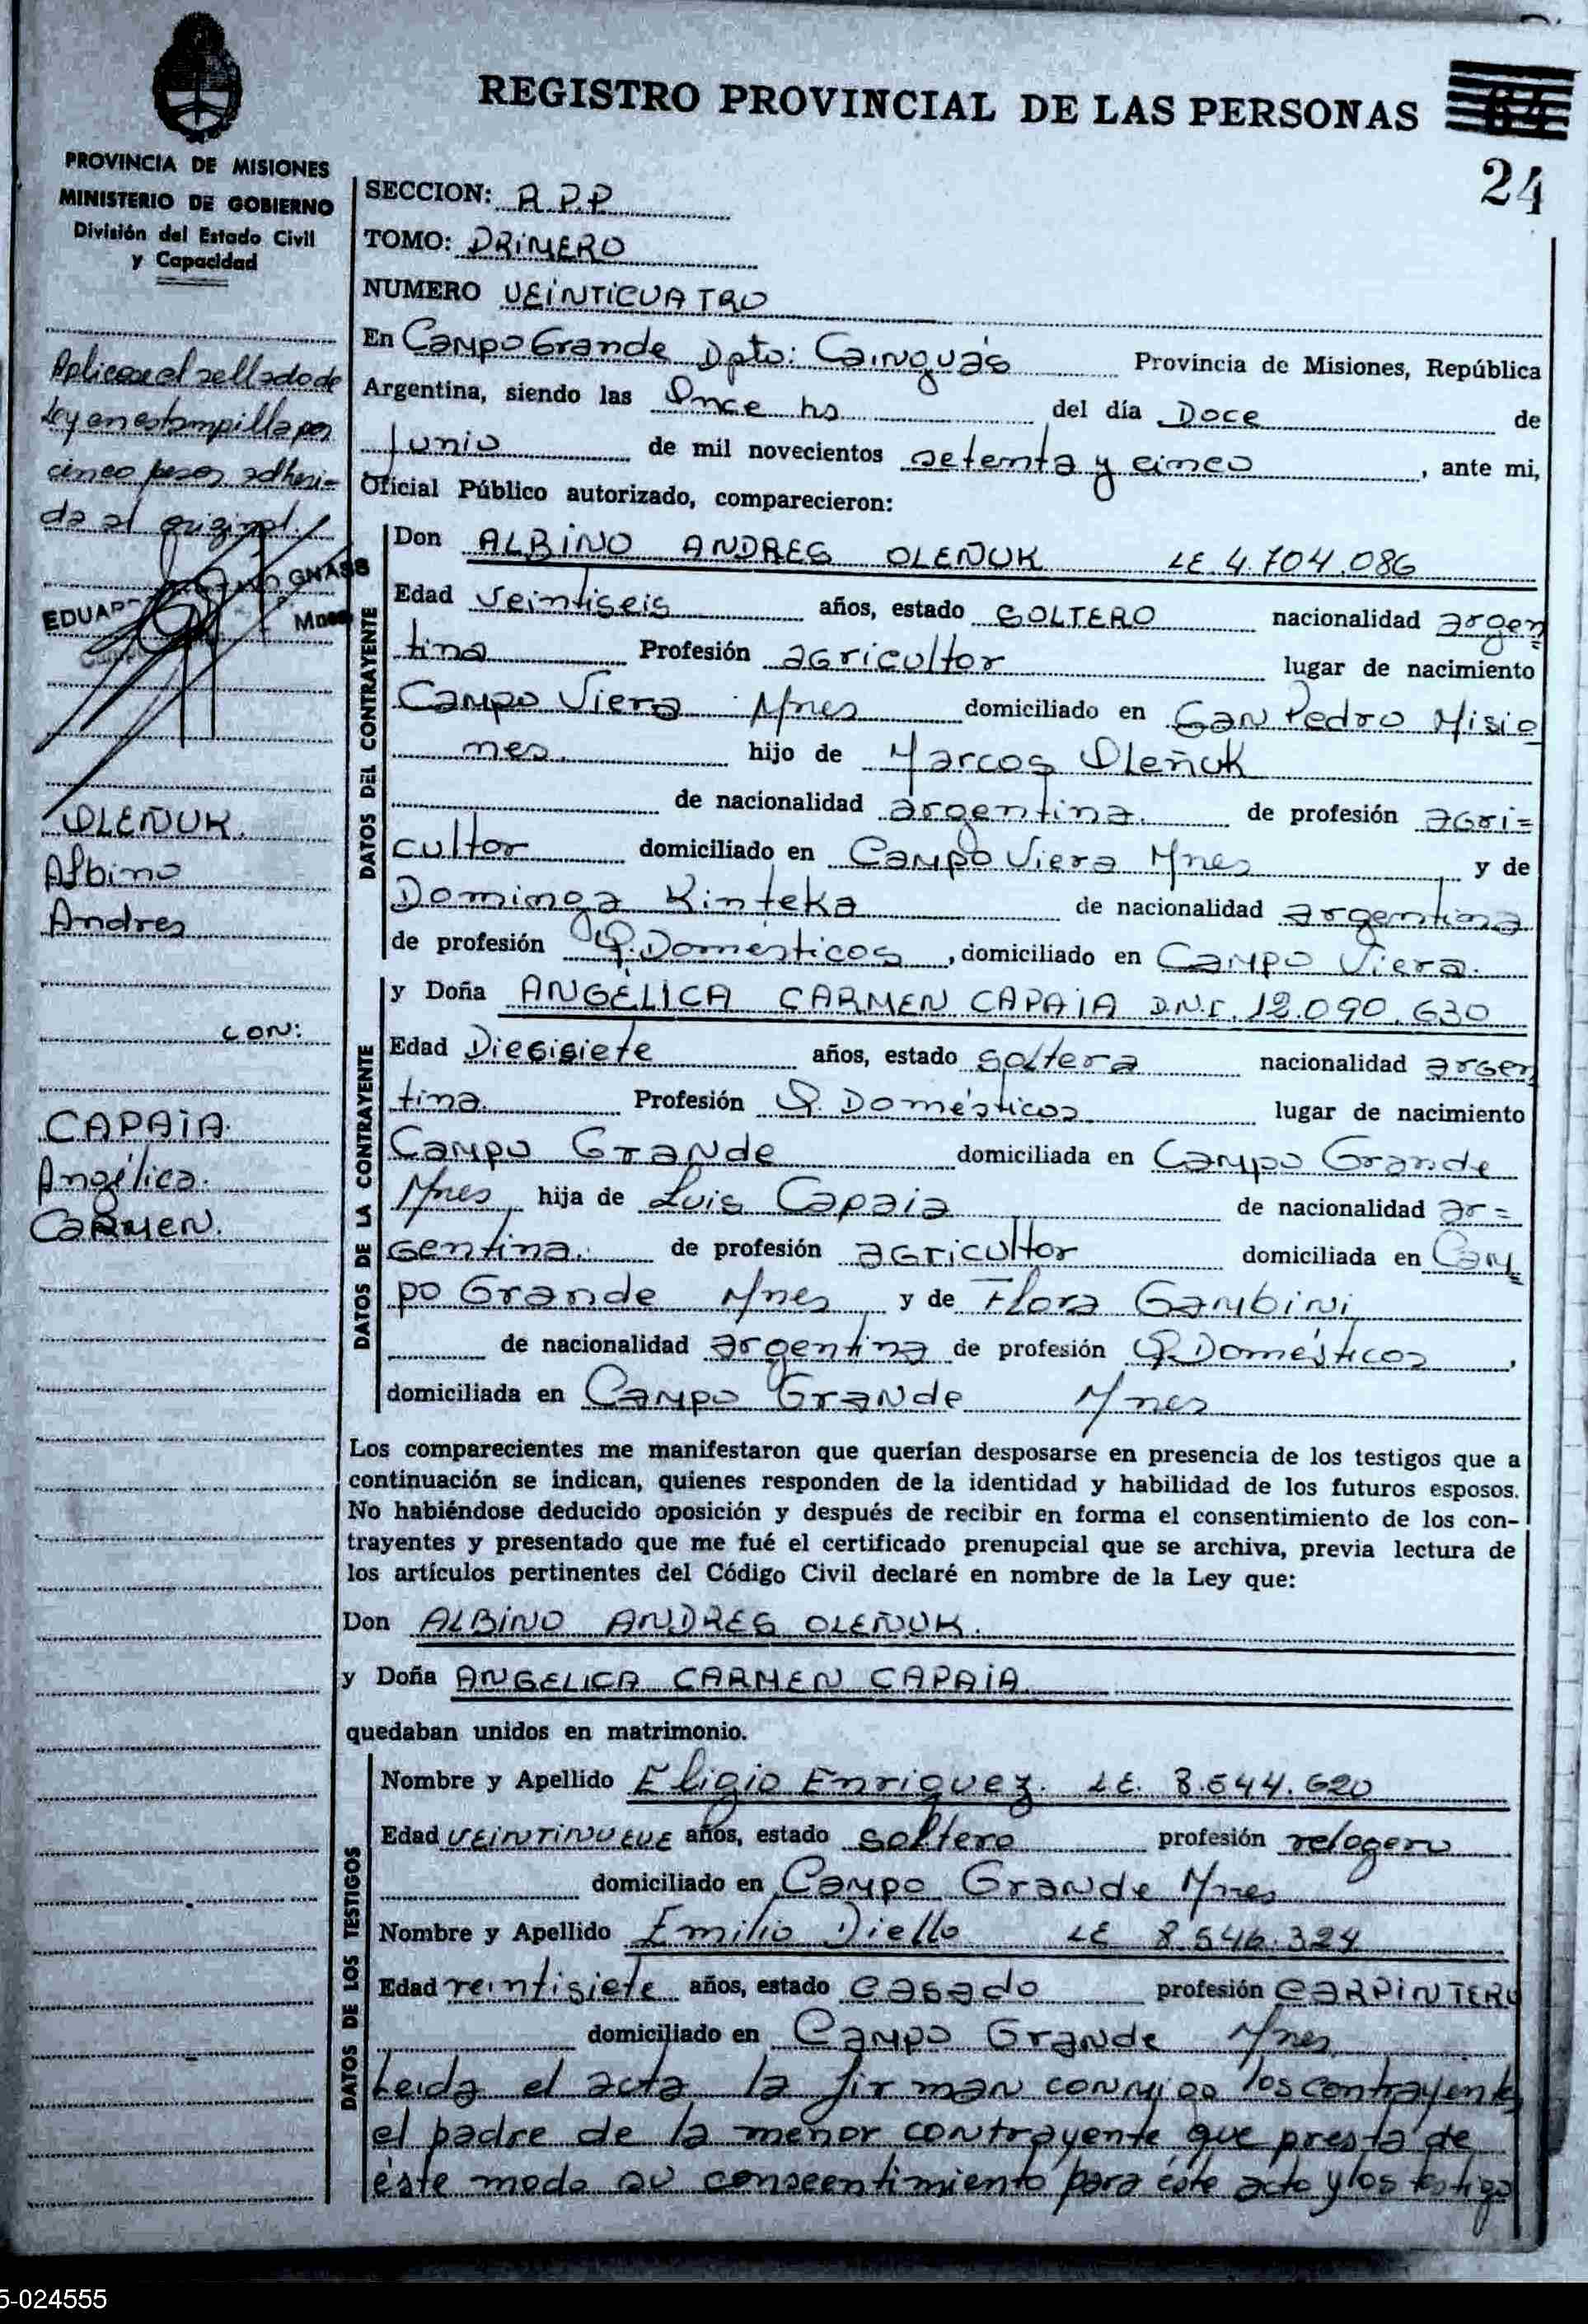 REGISTRO PROVINCIAL DE LAS PERSONAS
64
24
PROVINCIA DE MISIONES
MINISTERIO DE GOBIERNO
División del Estado Civil
y Capacidad
SECCION: A.P.P
TOMO: PRIMERO
NUMERO VEINTICUATRO
En Campo Grande Dpto: Cainguás Provincia de Misiones, República
Argentina, siendo las Once hs del día Doce de
Junio de mil novecientos setenta y cinco, ante mi,
Oficial Público autorizado, comparecieron:
Aplicase el sellado de
Ley en estampilla por
cinco pesos adheri-
da al original.
EDUAR GNASS
Mnes
OLEÑUK.
Albino
Andres
CON:
CAPAIA
Angélica
CARMEN.
DATOS DEL CONTRAYENTE
Don ALBINO ANDRES OLEÑUK LE 4.704.086
Edad Veintiseis años, estado SOLTERO nacionalidad argen
tina Profesión agricultor lugar de nacimiento
Campo Viera Mnes domiciliado en San Pedro Misio
nes. hijo de Marcos Oleñuk
de nacionalidad argentina. de profesión agri=
cultor domiciliado en Campo Viera Mnes y de
Dominga Kinteka de nacionalidad argentina
de profesión Q. Domésticos, domiciliado en Campo Viera.
DATOS DE LA CONTRAYENTE
y Doña ANGÉLICA CARMEN CAPAIA D.N.I. 12.090.630
Edad Diesisiete años, estado soltera nacionalidad argen
tina. Profesión Q. Domésticos lugar de nacimiento
Campo Grande domiciliada en Campo Grande
Mnes, hija de Luis Capaia de nacionalidad ar=
gentina. de profesión agricultor domiciliada en Cam
po Grande Mnes y de Flora Gambini
de nacionalidad argentina de profesión Q. Domésticos,
domiciliada en Campo Grande Mnes
Los comparecientes me manifestaron que querían desposarse en presencia de los testigos que a
continuación se indican, quienes responden de la identidad y habilidad de los futuros esposos.
No habiéndose deducido oposición y después de recibir en forma el consentimiento de los con-
trayentes y presentado que me fué el certificado prenupcial que se archiva, previa lectura de
los artículos pertinentes del Código Civil declaré en nombre de la Ley que:
Don ALBINO ANDRES OLEÑUK.
y Doña ANGELICA CARMEN CAPAIA
quedaban unidos en matrimonio.
DATOS DE LOS TESTIGOS
Nombre y Apellido Eligio Enriquez. LE. 8.544.620
Edad VEINTINUEVE años, estado soltero profesión relogero
domiciliado en Campo Grande Mnes
Nombre y Apellido Emilio Diello LE 8.546.324
Edad veintisiete años, estado casado profesión CARPINTERO
domiciliado en Campo Grande Mnes
Leida el acta la firman conmigo los contrayentes
el padre de la menor contrayente que presta de
éste modo su conseentimiento para éste acto y los testigos
5-024555